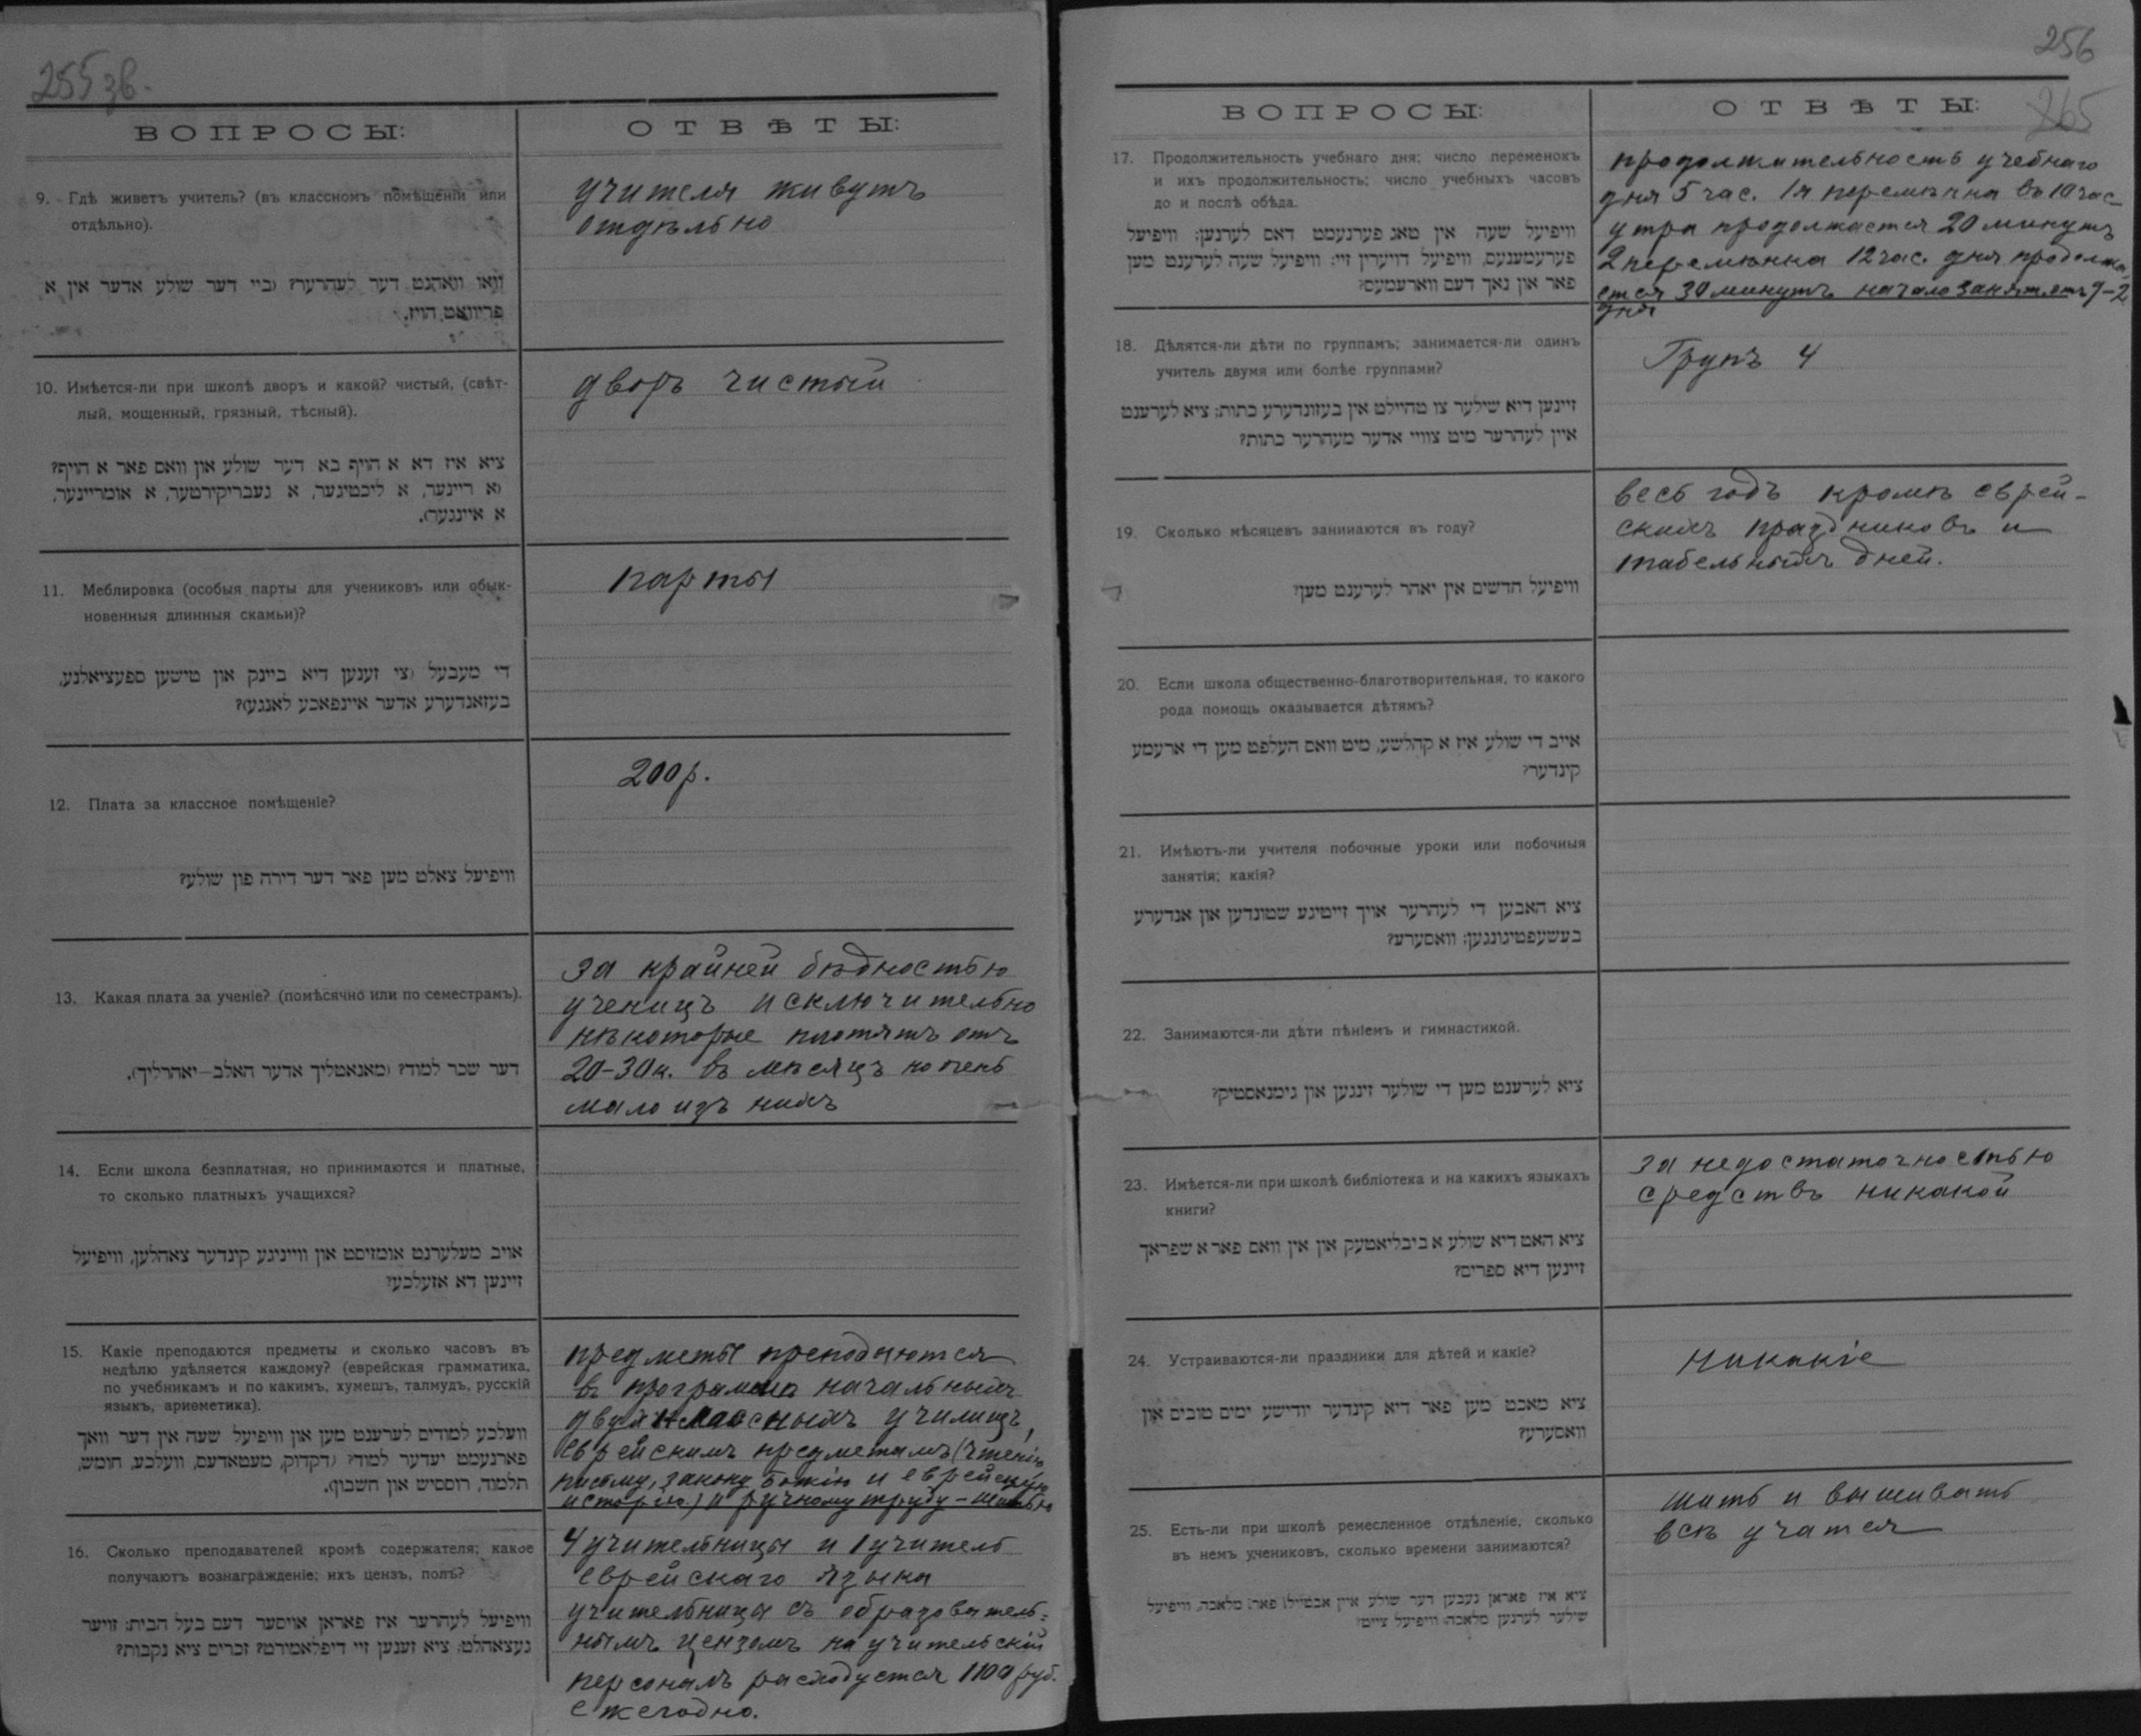 255 зв.
ВОПРОСЫ:
ОТВѢТЫ:
9. Гдѣ живетъ учитель? (въ классномъ помѣщеніи или
отдѣльно).
וואו וואהנט דער לעהרער? (ביי דער שולע אדער אין א
פריוואט הויז.
учителя живутъ
отдѣльно
10. Имѣется-ли при школѣ дворъ и какой? чистый, (свѣт-
лый, мощенный, грязный, тѣсный).
ציא איז דא א הויף בא דער שולע און וואס פאר א הויף?
(א ריינער, א ליכטיגער, א געבריקירטער, א אומריינער,
א איינגער).
дворъ чистый
11. Меблировка (особыя парты для учениковъ или обык-
новенныя длинныя скамьи)?
די מעבעל (צי זענען דיא ביינק און טישען ספעציאלנע,
בעזאנדערע אדער איינפאכע לאנגע)?
парты
12. Плата за классное помѣщеніе?
וויפיעל צאלט מען פאר דער דירה פון שולע?
200 р.
13. Какая плата за ученіе? (помѣсячно или по семестрамъ).
דער שכר למוד? (מאנאטליך אדער האלב–יאהרליך).
за крайней бѣдностью
ученицъ исключительно
нѣкоторые платятъ отъ
20-30 к. въ мѣсяцъ но очень
мало изъ нихъ
14. Если школа безплатная, но принимаются и платные,
то сколько платныхъ учащихся?
אויב מעלערנט אומזיסט און ווייניגע קינדער צאהלען, וויפיעל
זיינען דא אזעלכע?
15. Какіе преподаются предметы и сколько часовъ въ
недѣлю удѣляется каждому? (еврейская грамматика,
по учебникамъ и по какимъ, хумешъ, талмудъ, русскій
языкъ, ариѳметика).
וועלכע למודים לערענט מען און וויפיעל שעה אין דער וואך
פארנעמט יעדער למוד? (דקדוק, מעטאדעס, וועלכע, חומש,
תלמוד, רוססיש און חשבון.
предметы преподаются
въ програмѣ начальныхъ
двухклассныхъ училищъ,
еврейскимъ предметамъ (чтенію
письму, закону Божію и еврейскую
исторію) и ручному труду - шитью
16. Сколько преподавателей кромѣ содержателя; какое
получаютъ вознагражденіе; ихъ цензъ, полъ?
וויפיעל לעהרער איז פאראן אויסער דעם בעל הבית; זויער
געצאהלט; ציא זענען זיי דיפלאמירט? זכרים ציא נקבות?
4 учительницы и 1 учитель
еврейскаго языка
учительницы съ образователь-
нымъ цензомъ на учительскій
персоналъ расходуется 1100 руб.
ежегодно.
256
265
ВОПРОСЫ:
ОТВѢТЫ:
17. Продолжительность учебнаго дня; число переменокъ
и ихъ продолжительность; число учебныхъ часовъ
до и послѣ обѣда.
וויפיעל שעה אין טאג פערנעמט דאס לערנען; וויפיעל
פערעמענעס, וויפיעל דויערין זיי; וויפיעל שעה לערענט מען
פאר און נאך דעם ווארעמעס?
продолжительность учебнаго
дня 5 час. 1я перемѣнна въ 10 час
утра продолжается 20 минутъ
2 перемѣнка 12 час. дня продолжа-
ется 30 минутъ начало занят. отъ 9-2
дня
18. Дѣлятся-ли дѣти по группамъ; занимается-ли одинъ
учитель двумя или болѣе группами?
זיינען דיא שילער צו טהיילט אין בעזונדערע כתות; ציא לערענט
איין לעהרער מיט צוויי אדער מעהרער כתות?
Групъ 4
19. Сколько мѣсяцевъ занимаются въ году?
וויפיעל חדשים אין יאהר לערענט מען?
весь годъ кромѣ еврей-
скихъ праздниковъ и
табельныхъ дней.
20. Если школа общественно-благотворительная, то какого
рода помощь оказывается дѣтямъ?
אייב די שולע איז א קהלשע, מיט וואס העלפט מען די ארעמע
קינדער?
21. Имѣютъ-ли учителя побочные уроки или побочныя
занятія; какія?
ציא האבען די לעהרער אויך זייטיגע שטונדען און אנדערע
בעשעפטיגונגען; וואסערע?
22. Занимаются-ли дѣти пѣніемъ и гимнастикой.
ציא לערענט מען די שולער זינגען און גימנאסטיק?
23. Имѣется-ли при школѣ библіотека и на какихъ языкахъ
книги?
ציא האט דיא שולע א ביבליאטעק און אין וואס פאר א שפראך
זיינען דיא ספרים?
за недостаточностью
средствъ никакой
24. Устраиваются-ли праздники для дѣтей и какіе?
ציא מאכט מען פאר דיא קינדער יודישע ימים טובים און
וואסערע?
никакіе
25. Есть-ли при школѣ ремесленное отдѣленіе, сколько
въ немъ учениковъ, сколько времени занимаются?
ציא איז פאראן נעבען דער שולע איין אבטייל פאר מלאכה, וויפיעל
שילער לערנען מלאכה; וויפיעל צייט?
шить и вышивать
всѣ учатся